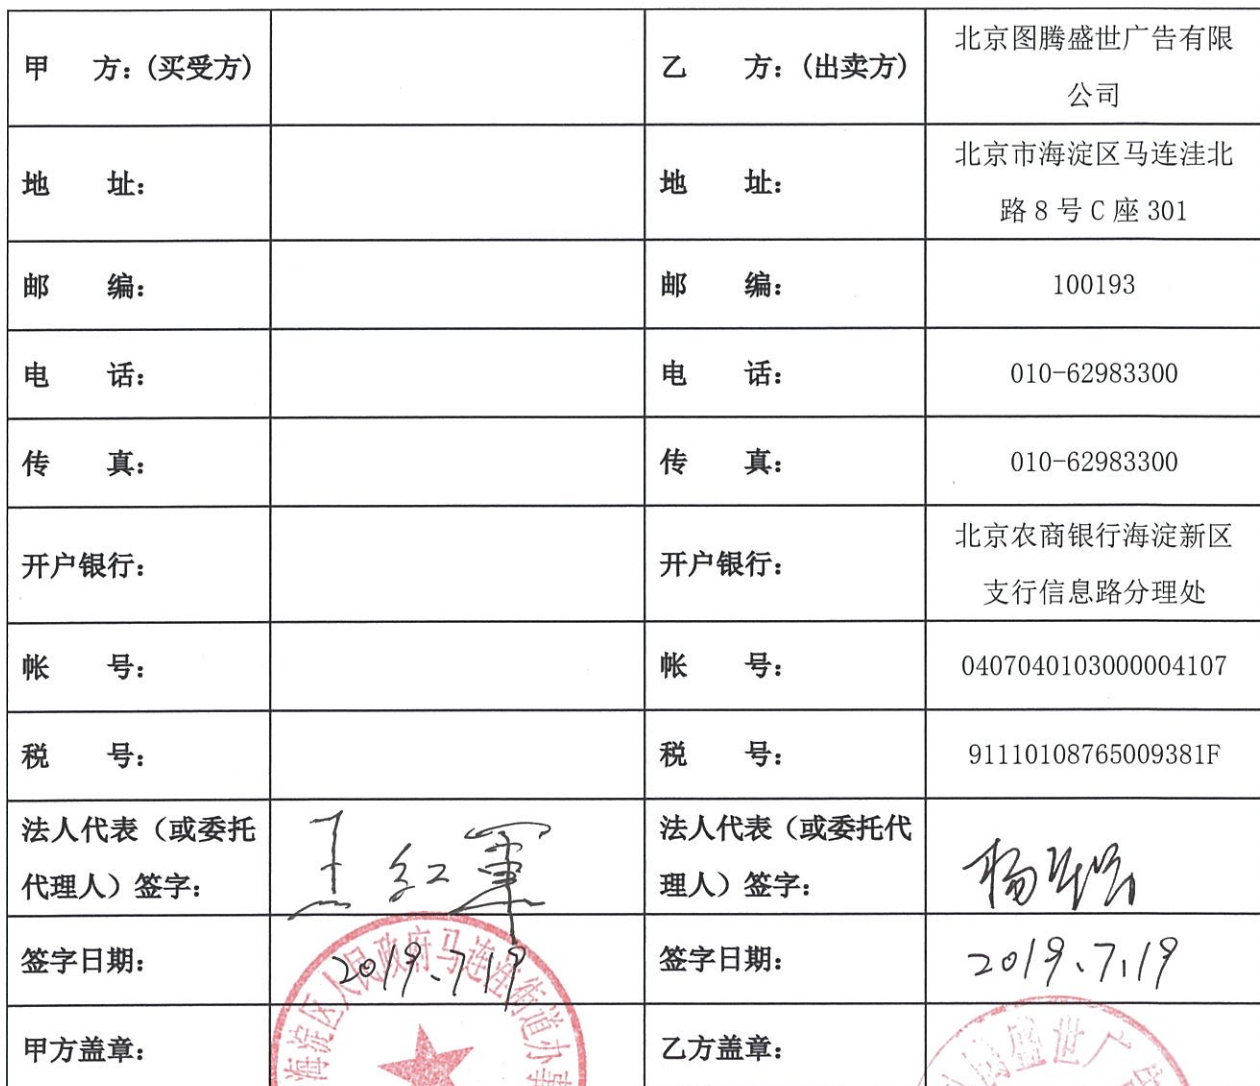 甲 方：(买受方)
乙 方：(出卖方)
北京图腾盛世广告有限
公司
地 址：
地 址：
北京市海淀区马连洼北
路 8 号 C 座 301
邮 编：
邮 编：
100193
电 话：
电 话：
010-62983300
传 真：
传 真：
010-62983300
开户银行：
开户银行：
北京农商银行海淀新区
支行信息路分理处
帐 号：
帐 号：
0407040103000004107
税 号：
税 号：
91110108765009381F
法人代表（或委托
代理人）签字：
王红军
法人代表（或委托代
理人）签字：
签字日期：
2019、7.19
签字日期：
2019、7.19
甲方盖章：
海淀区人民政府马连洼街道办事
乙方盖章：
盛世广